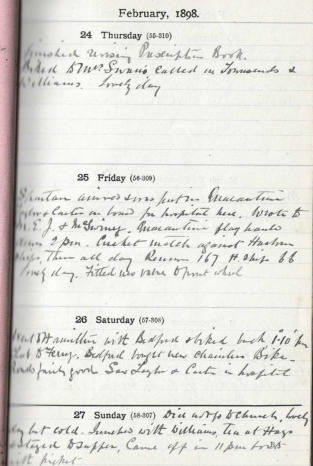 February, 1898.
24 Thursday (55-310)
Finished revising Prescription Book.
Biked to Mrs Swan's called on Townsends &
Williams. Lovely day
25 Friday (56-309)
arrived & was put in Quarantine
Carter on board for hospital here. Wrote to
M. E. J. & McGivney. Quarantine flag hauled
down 2 pm. Cricket match against
Ships, there all day 167 H. Ships 66
lovely day. Fitted new valve to front wheel
26 Saturday (57-308)
Went to Hamilton with Bedford & biked back 1.10
to Ferry. Bedford bought new chainless Bike.
Roads fairly good Saw & Carter in hospital
27 Sunday (58-307) Did not go to Church, lovely
day but cold. Lunched with Williams, Tea at Hays
& Stayed to supper, Came off in 11 pm
with